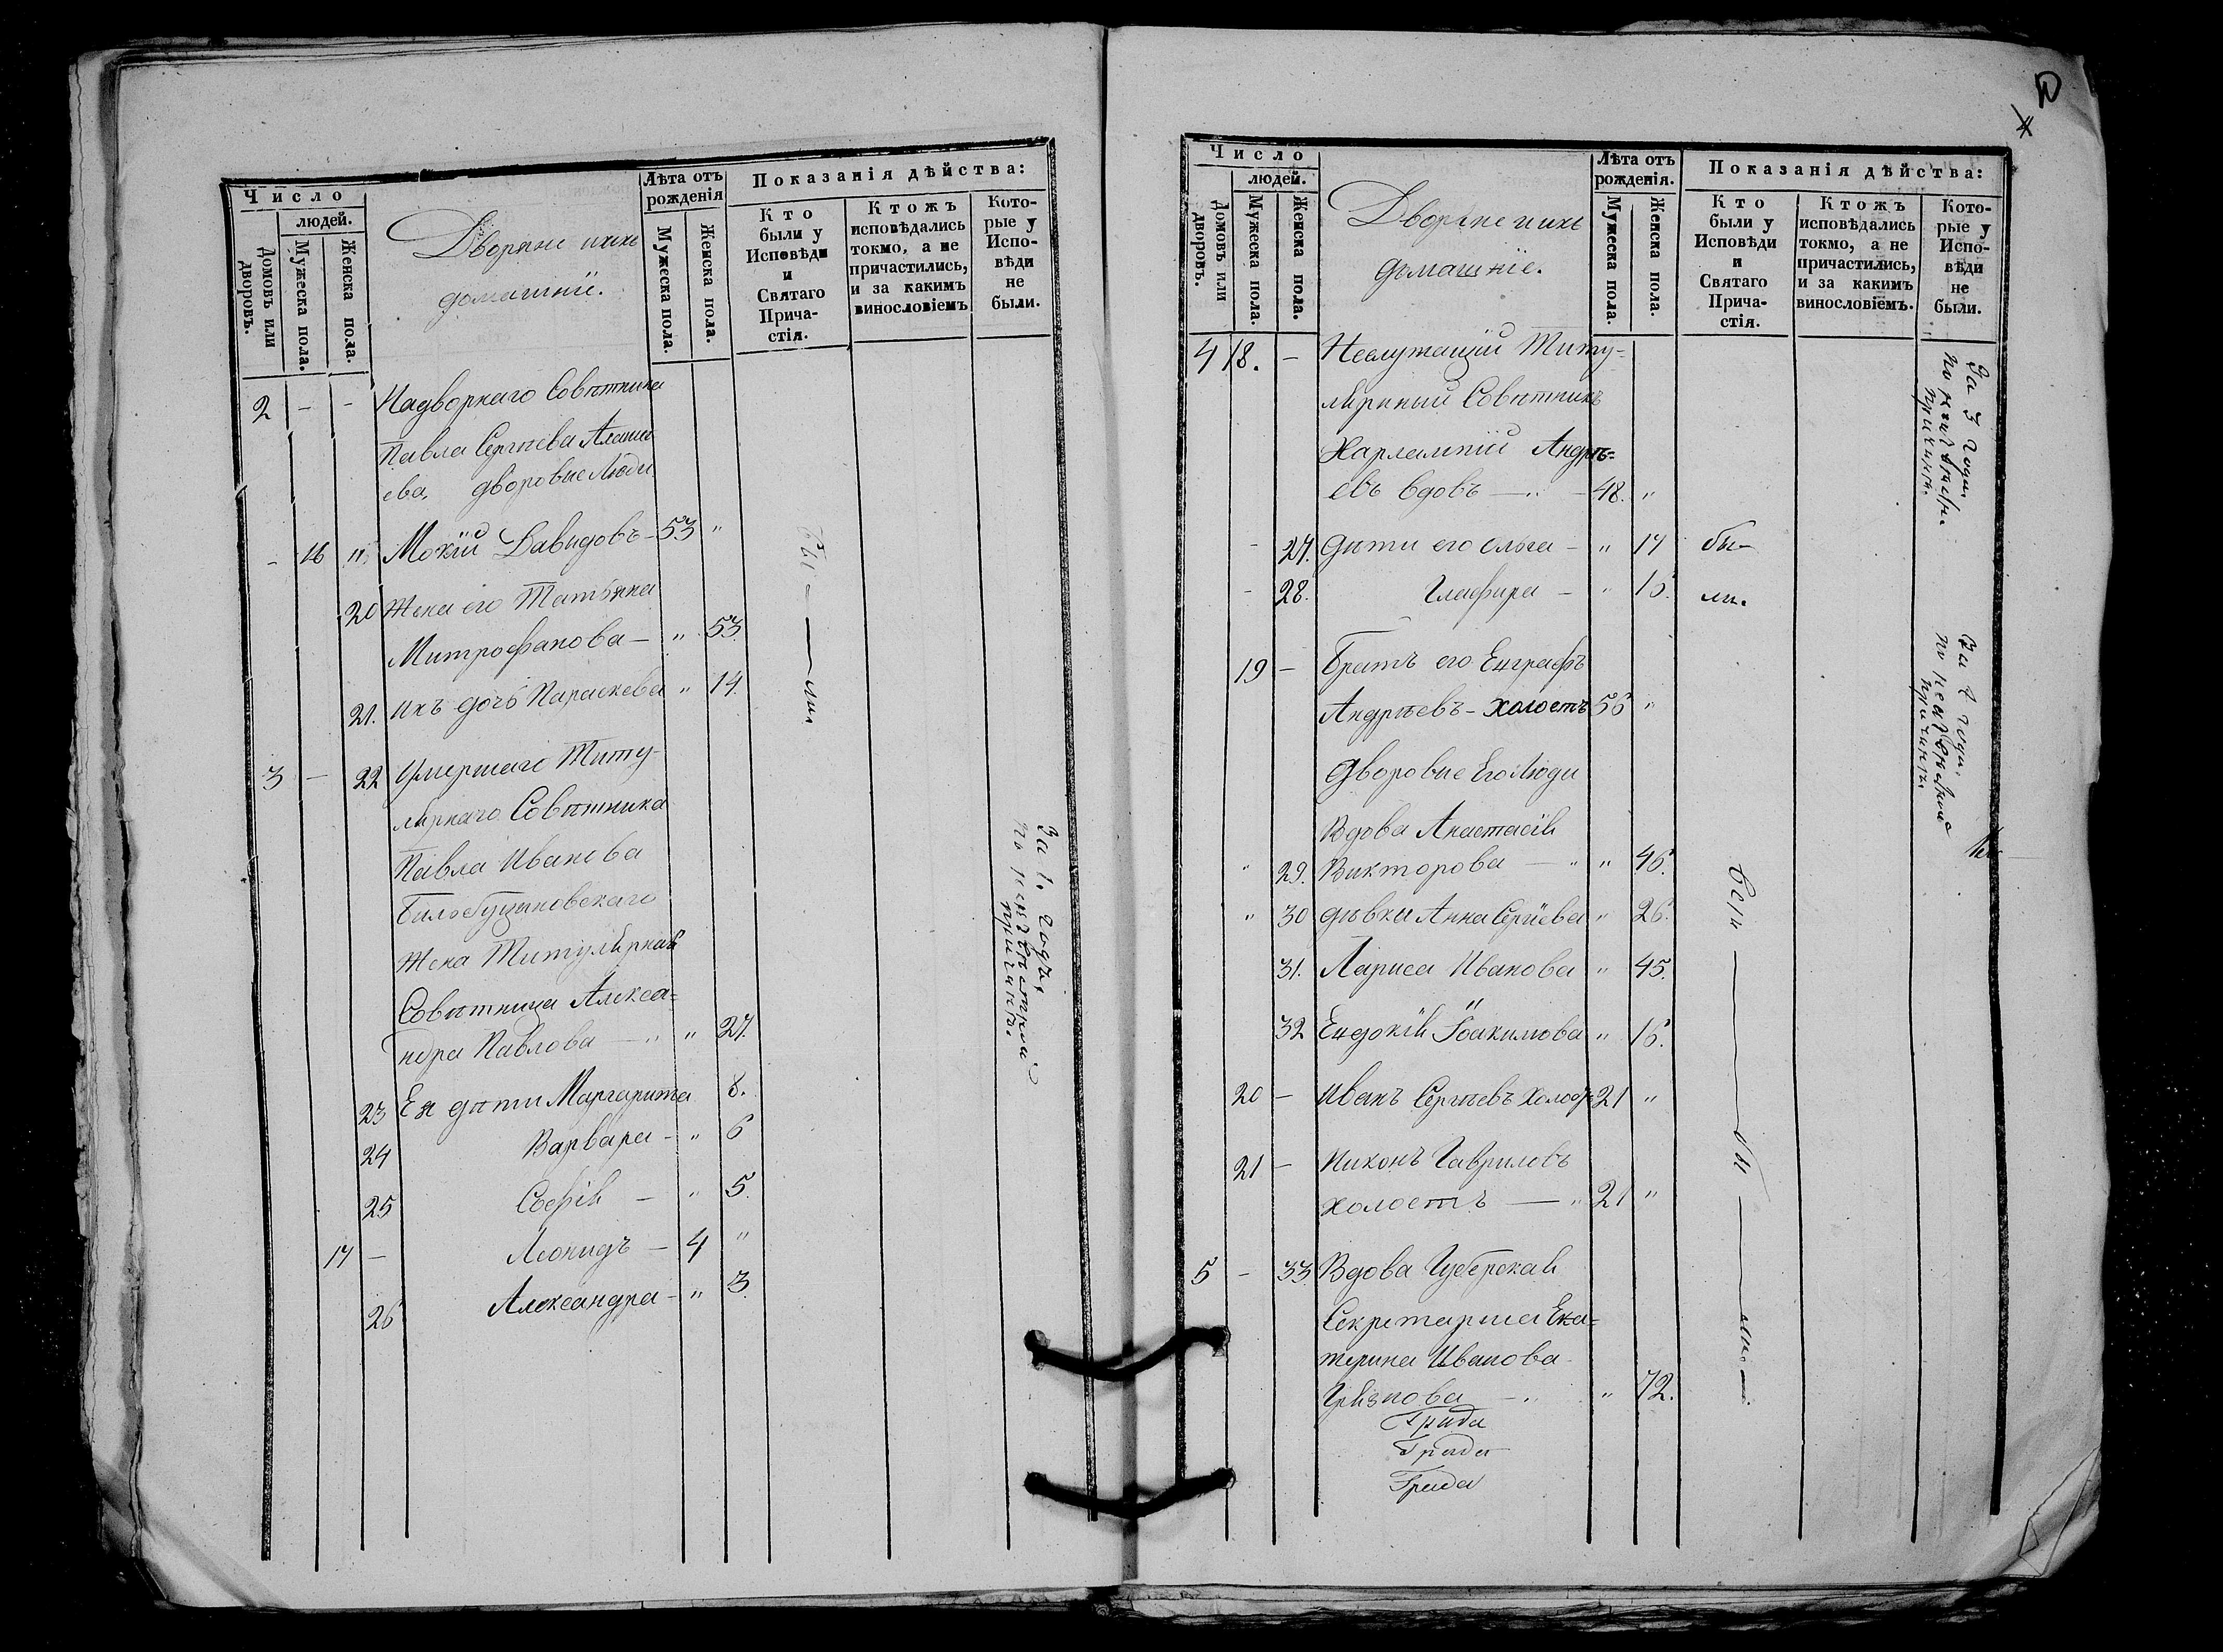 Число
людей.
Домовъ или дворовъ.
Мужеска пола.
Женска пола.
Дворяне и ихъ
домашніи.
Лѣта отъ рожденія
Мужеска пола.
Женска пола.
Показанія дѣйства:
Кто были у Исповѣди и Святаго Прича-стія.
Ктожъ исповѣдались токмо, а не причастились, и за какимъ винословіемъ
Кото-рые у Испо-вѣди не были.
2 - - Надворнаго Совѣтника
Павла Сергѣева
ева, дворовые Люди
- 16 " Мокій Давидовъ - 53 "
20 Жена его Татьяна
Митрофанова - " 53.
21. ихъ дочь Параскева " 14.
бы - ли
3 - 22 Умершаго Титу-
лярнаго Совѣтника
Павла Иванова
Жена Титулярная
Совѣтница Алекса=
ндра Павлова - " " 27.
23 Ея дѣти Маргарита 8.
24 Варвара - " 6
25 Софія - " 5.
17 - Леонидъ - 4 "
26 Александра - " 3
За 1. годъ,
по неизвѣстной
причинѣ.
Число
людей.
Домовъ или дворовъ.
Мужеска пола.
Женска пола.
Дворяне и ихъ
домашніе.
Лѣта отъ рожденія.
Мужеска пола.
Женска пола.
Показанія дѣйства:
Кто были у Исповѣди и Святаго Прича-стія.
Ктожъ исповѣдались токмо, а не причастились, и за какимъ винословіемъ.
Кото-рые у Испо-вѣди не были.
4 18. - Неслужащій Титу=
лярный Совѣтникъ
Харлампій Андрѣ=
евъ вдовъ - " - 48. "
За 3 года.
по неизвѣстн.
причинѣ.
- 27. Дѣти его Ольга - " 17 бы-
- 28. Глафира - " 15. ли.
19 - Братъ его Евграфъ
Андрѣевъ - холостъ 55 "
За 2 года,
по неизвѣстной
причинѣ
Дворовые Его Люди
Вдова Анастасія
" 29. Викторова - " " 46.
" 30 дѣвки Анна Сергіева " 26.
31. Лариса Иванова " 45.
32 Евдокія Іоакимова " 16.
20 - Иванъ Сергѣевъ холост 21 "
21 - Никонъ Гавриловъ
холостъ - " 21 "
5 - 33 Вдова Губерская
Секретарша Ека=
терина Иванова
Грязнова - " " 72.
всѣ - бы - ли.